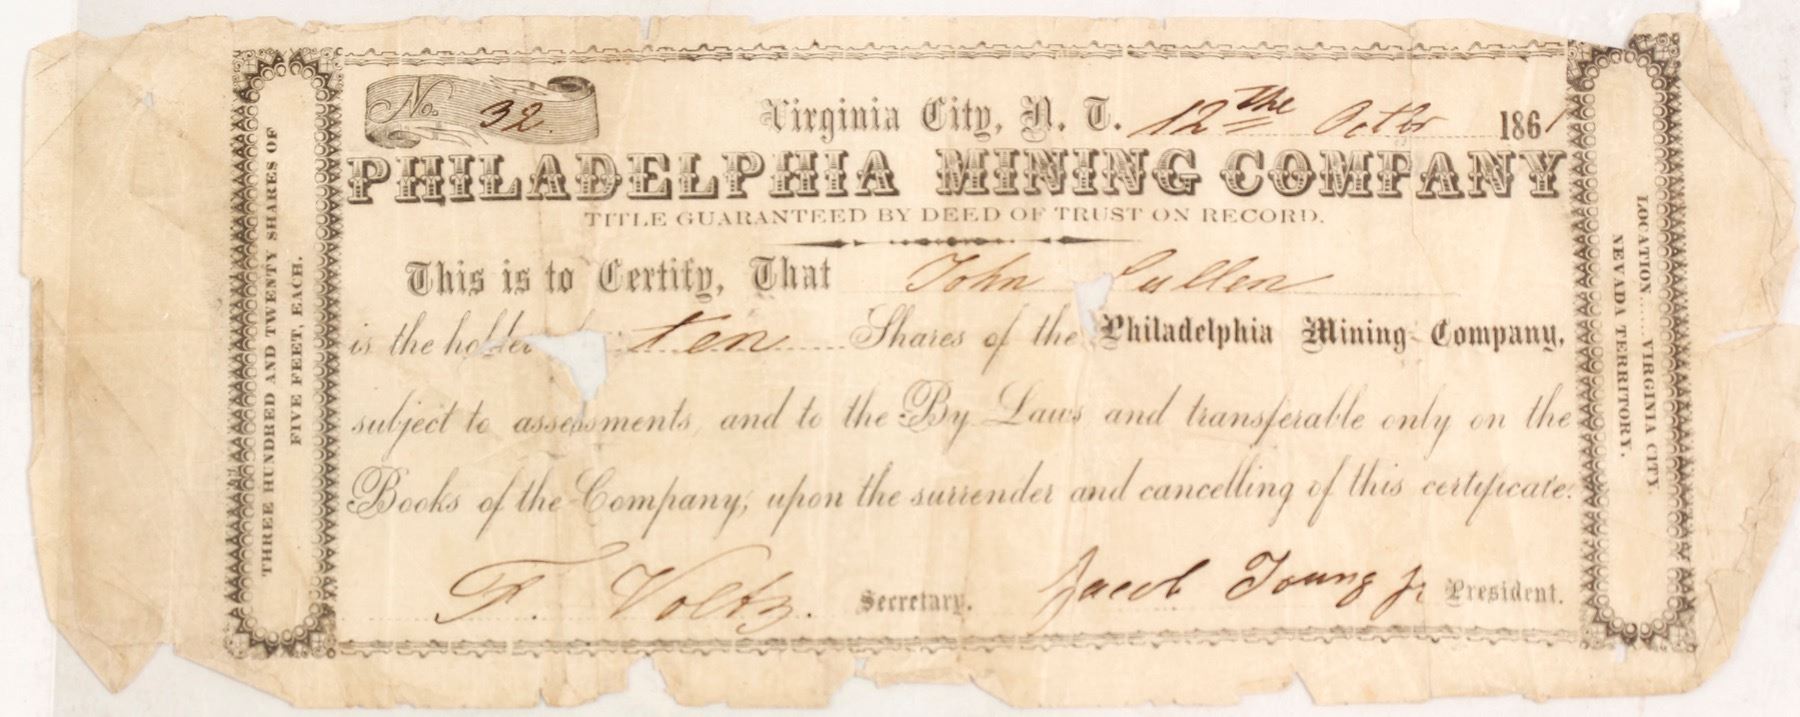 THREE HUNDRED AND TWENTY SHARES OF
FIVE FEET, EACH.
No. 32.
Virginia City, N. T. 12the Octbr 1861
PHILADELPHIA MINING COMPANY
TITLE GUARANTEED BY DEED OF TRUST ON RECORD.
This is to Certify, That John ullen
is the holder ten Shares of the Philadelphia Mining Company,
subject to assessments, and to the By Laws and transferable only on the
Books of the Company, upon the surrender and cancelling of this certificate.
F. Voltz. Secretary. Jacob Young Jr President.
LOCATION......VIRGINIA CITY,
NEVADA TERRITORY.